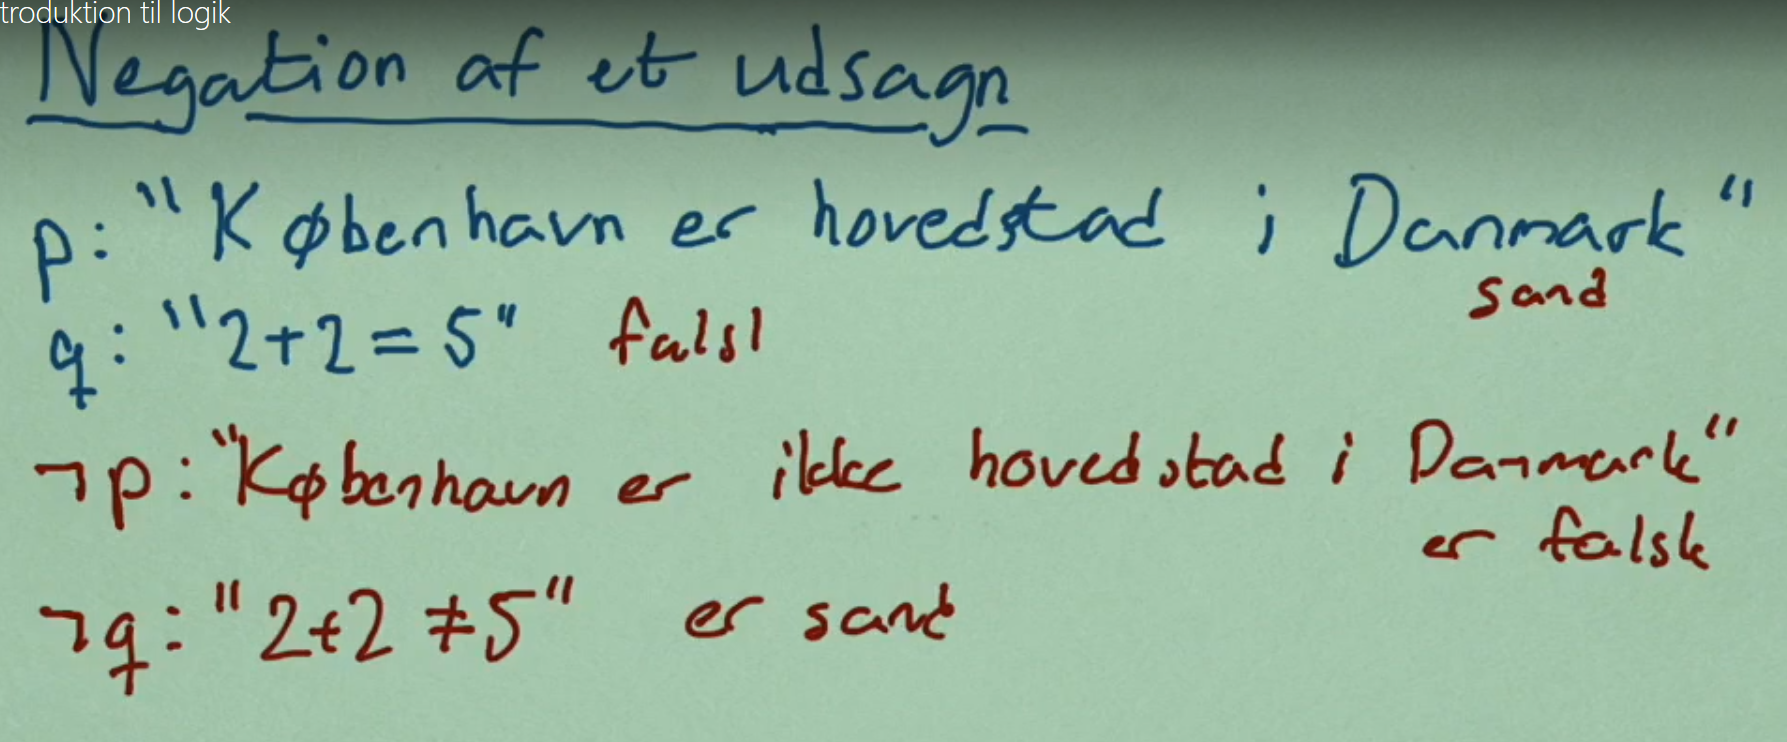 troduktion til logik
Negation af et udsagn
p: "København er hovedstad i Danmark"
sand
q: "2+2=5" falsk
¬p: "København er ikke hovedstad i Danmark"
er falsk
¬q: "2+2≠5" er sand